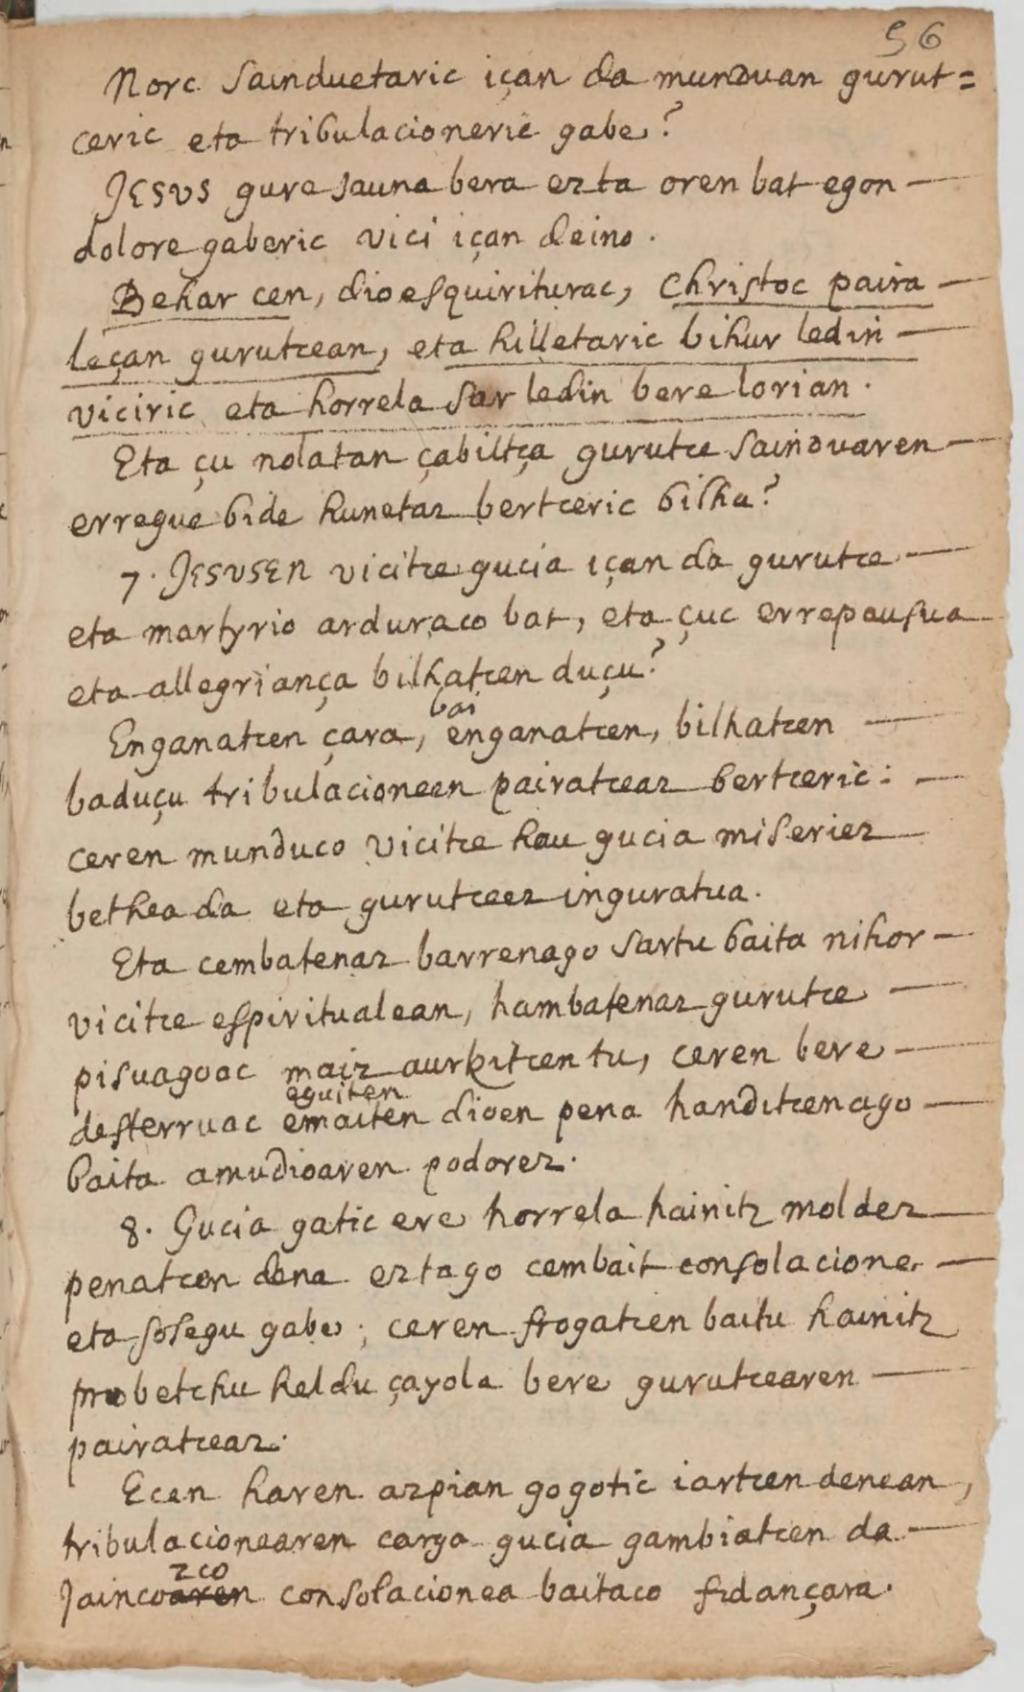 56
Norc Sainduetaric içan da munduan gurut=
ceric eta tribulacioneric gabe?
JESVS gure Jauna bera ezta oren bat egon —
dolore gaberic vici içan deino.
Behar cen, dio esquirituraс, Christoc paira —
leçan gurutcean, eta hilletaric bihur ledin —
viciric eta horrela Sar ledin bere lorian.
Eta çu nolatan çabiltça gurutce Sainduaren —
erregue bide hunetaz bertceric bilha?
7. JESVSEN vicitce gucia içan da gurutce —
eta martyrio arduraco bat, eta çuc errepausua
eta allegriança bilhatcen duçu?
Enganatcen çara, bai enganatcen, bilhatcen —
baduçu tribulacioneen pairatceaz bertceric: —
ceren munduco vicitce hau gucia miseriez
bethea da eta gurutceez inguratua.
Eta cembatenaz barrenago Sartu baita nihor —
vicitce espiritualean, hambatenaz gurutce —
pisuagoac maiz aurkitcen tu, ceren bere —
desterruac emaiten eguiten dioen pena handitcenago —
baita amudioaren podorez.
8. Gucia gatic ere horrela hainitz moldez —
penatcen dena eztago cembait consolacione —
eta sosegu gabe; ceren frogatcen baitu hainitz
probetchu heldu çayola bere gurutcearen —
pairatceaz.
Ecen haren azpian gogotic iartcen denean,
tribulacionearen carga gucia gambiatcen da —
Jaincoaren zco consolacionea baitaco fidançara.